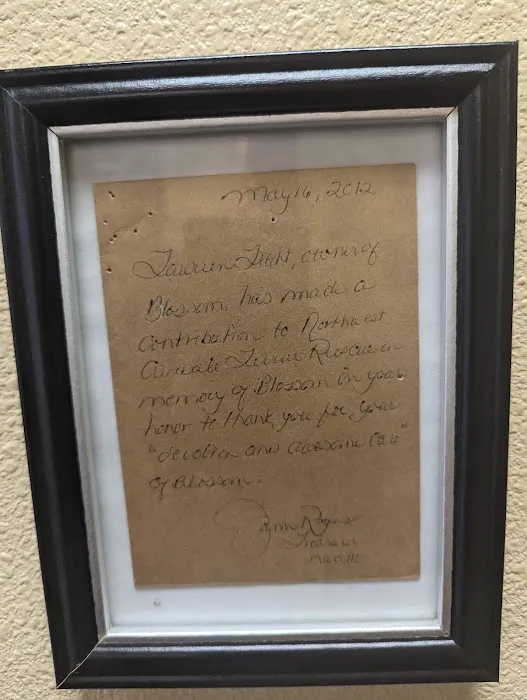 May 16, 2012
owner of
Blossom, has made a
contribution to Northwest
Airedale Terrier Rescue in
memory of Blossom in your
honor to thank you for your
"devotion and awesome care"
of Blossom.